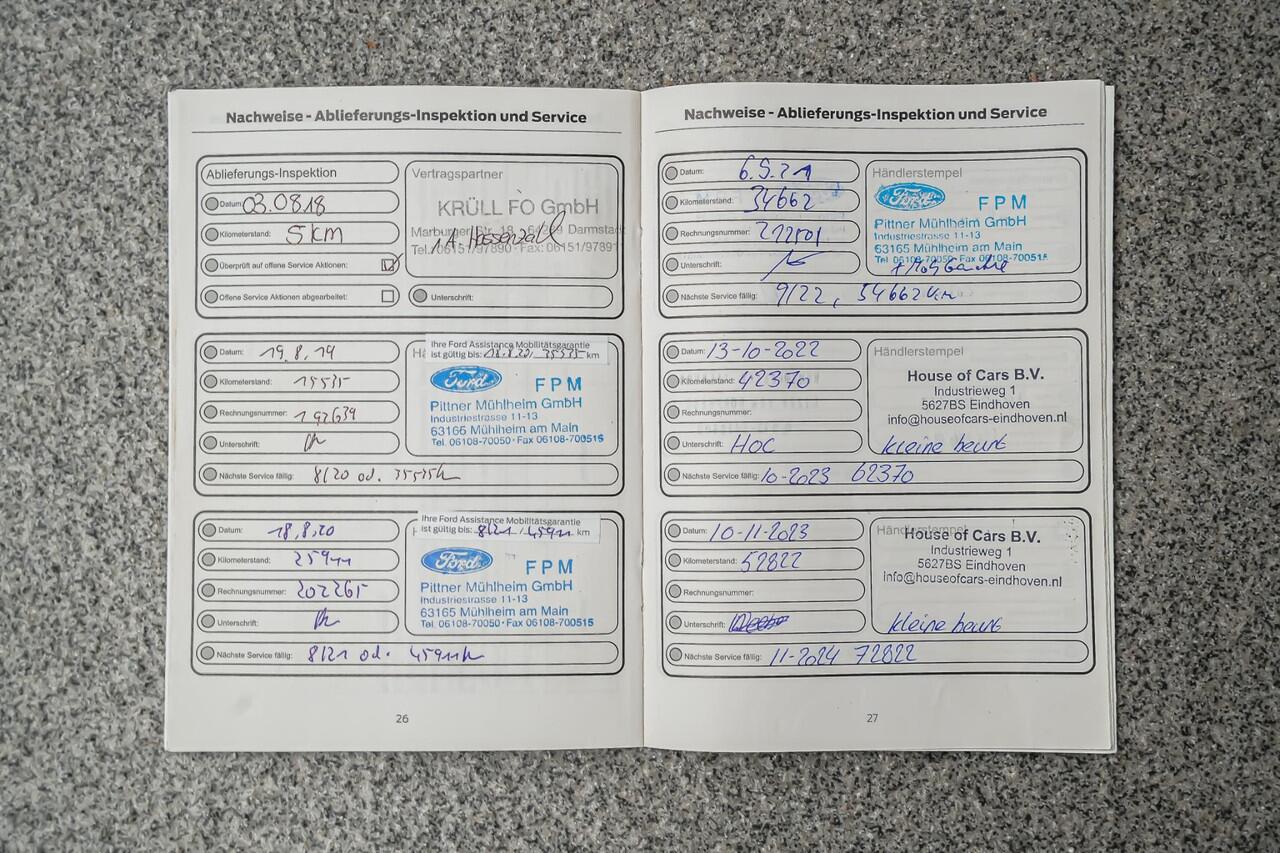 Nachweise - Ablieferungs-Inspektion und Service
Ablieferungs-Inspektion
Datum: 03.08.18
Kilometerstand: 5 KM
Überprüft auf offene Service Aktionen:
Offene Service Aktionen abgearbeitet:
Vertragspartner
KRÜLL FO GmbH
Marburger Str. 18 Darmstadt
Tel. 06151/97890 - Fax: 06151/9789
Unterschrift:
Datum: 19.8.19
Kilometerstand: 15535
Rechnungsnummer: 192639
Unterschrift:
Nächste Service fällig: 8/20 od. 35535
Ihre Ford Assistance Mobilitätsgarantie
ist gültig bis: 18.8.20/ 35535 km
Ford FPM
Pittner Mühlheim GmbH
Industriestrasse 11-13
63165 Mühlheim am Main
Tel. 06108-70050 · Fax 06108-700515
Datum: 18.8.20
Kilometerstand:
Rechnungsnummer: 202265
Unterschrift:
Nächste Service fällig: 8/21 od.
Ihre Ford Assistance Mobilitätsgarantie
ist gültig bis: 8/21 / km
Ford FPM
Pittner Mühlheim GmbH
Industriestrasse 11-13
63165 Mühlheim am Main
Tel. 06108-70050 · Fax 06108-700515
26
Nachweise - Ablieferungs-Inspektion und Service
Datum: 6.9.21
Kilometerstand: 34662
Rechnungsnummer: 212501
Unterschrift:
Nächste Service fällig: 9/22, 54662 km
Händlerstempel
Ford FPM
Pittner Mühlheim GmbH
Industriestrasse 11-13
63165 Mühlheim am Main
Tel 06108-70050 · Fax 06108-700515
Datum: 13-10-2022
Kilometerstand: 42370
Rechnungsnummer:
Unterschrift: HOC
Nächste Service fällig: 10-2023 62370
Händlerstempel
House of Cars B.V.
Industrieweg 1
5627BS Eindhoven
info@houseofcars-eindhoven.nl
kleine beurt
Datum: 10-11-2023
Kilometerstand: 52822
Rechnungsnummer:
Unterschrift:
Nächste Service fällig: 11-2024 72822
Händlerstempel
House of Cars B.V.
Industrieweg 1
5627BS Eindhoven
info@houseofcars-eindhoven.nl
kleine beurt
27